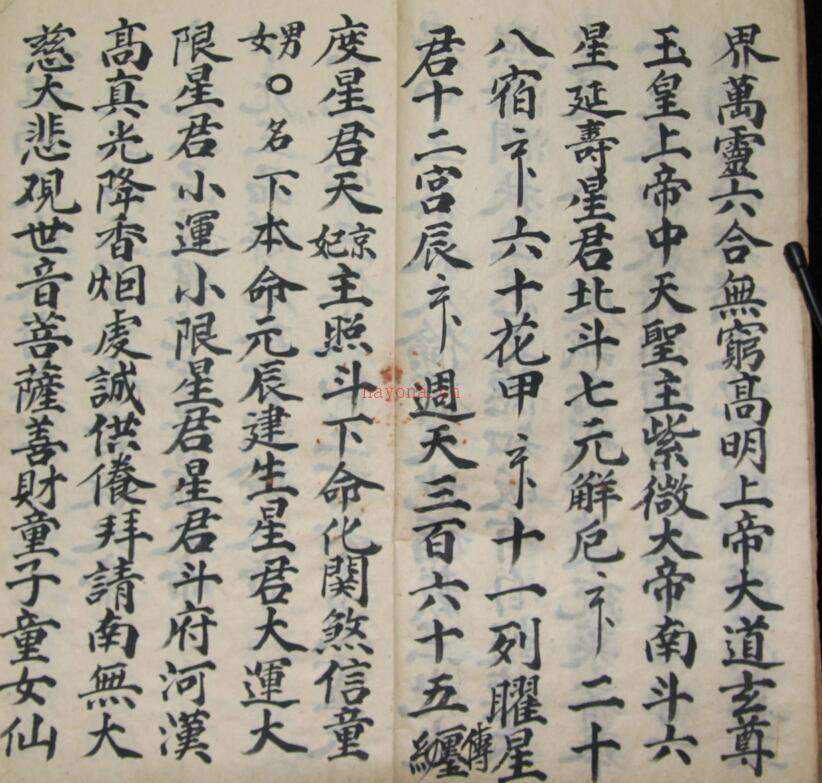 界萬靈六合無窮高明上帝大道玄尊
玉皇上帝中天聖主紫微大帝南斗六
星延壽星君北斗七元解厄二十
八宿六十花甲十一列曜星
君十二宮辰週天三百六十五纏傳
度星君天京妃主照斗下命化関煞信童
男女○名下本命元辰建生星君大運大
限星君小運小限星君星君斗府河漢
高真光降香烟虔誠供養拜請南無大
慈大悲观世音菩薩善財童子童女仙
hayona.cn